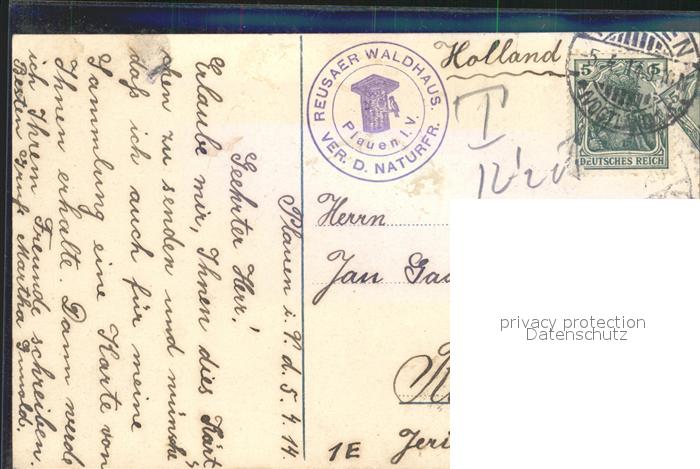 Plauen i. V. d. 5. 4. 14.
Geehrter Herr!
Erlaube mir, Ihnen dies Kärt
chen zu senden und wünsche
daß ich auch für meine
Sammlung eine Karte von
Ihnen erhalte. Dann werde
ich Ihrem Freunde schreiben.
Besten Gruß Martha
REUSAER WALDHAUS.
Plauen i. V.
VER. D. NATURFR.
Holland
T
5 5
DEUTSCHES REICH
Herrn
Jan
1E
privacy protection
Datenschutz